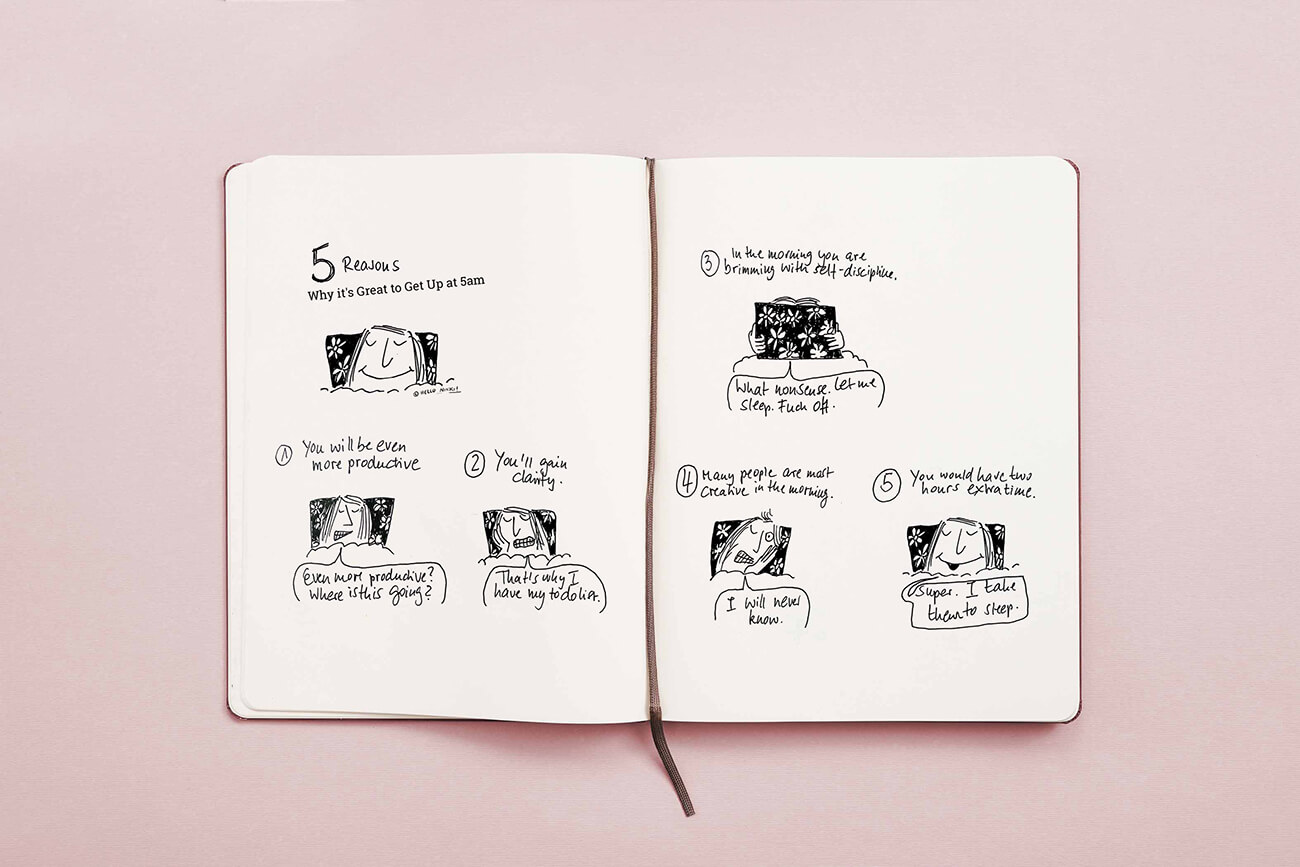 5 Reasons
Why it's Great to Get Up at 5am
© HELLO
1 You will be even
more productive
Even more productive?
Where is this going?
2 You'll gain
clarity.
That's why I
have my to do list.
3 In the morning you are
brimming with self-discipline.
What nonsense. Let me
sleep. Fuck off.
4 Many people are most
creative in the morning.
I will never
know.
5 You would have two
hours extra time.
Super. I take
them to sleep.